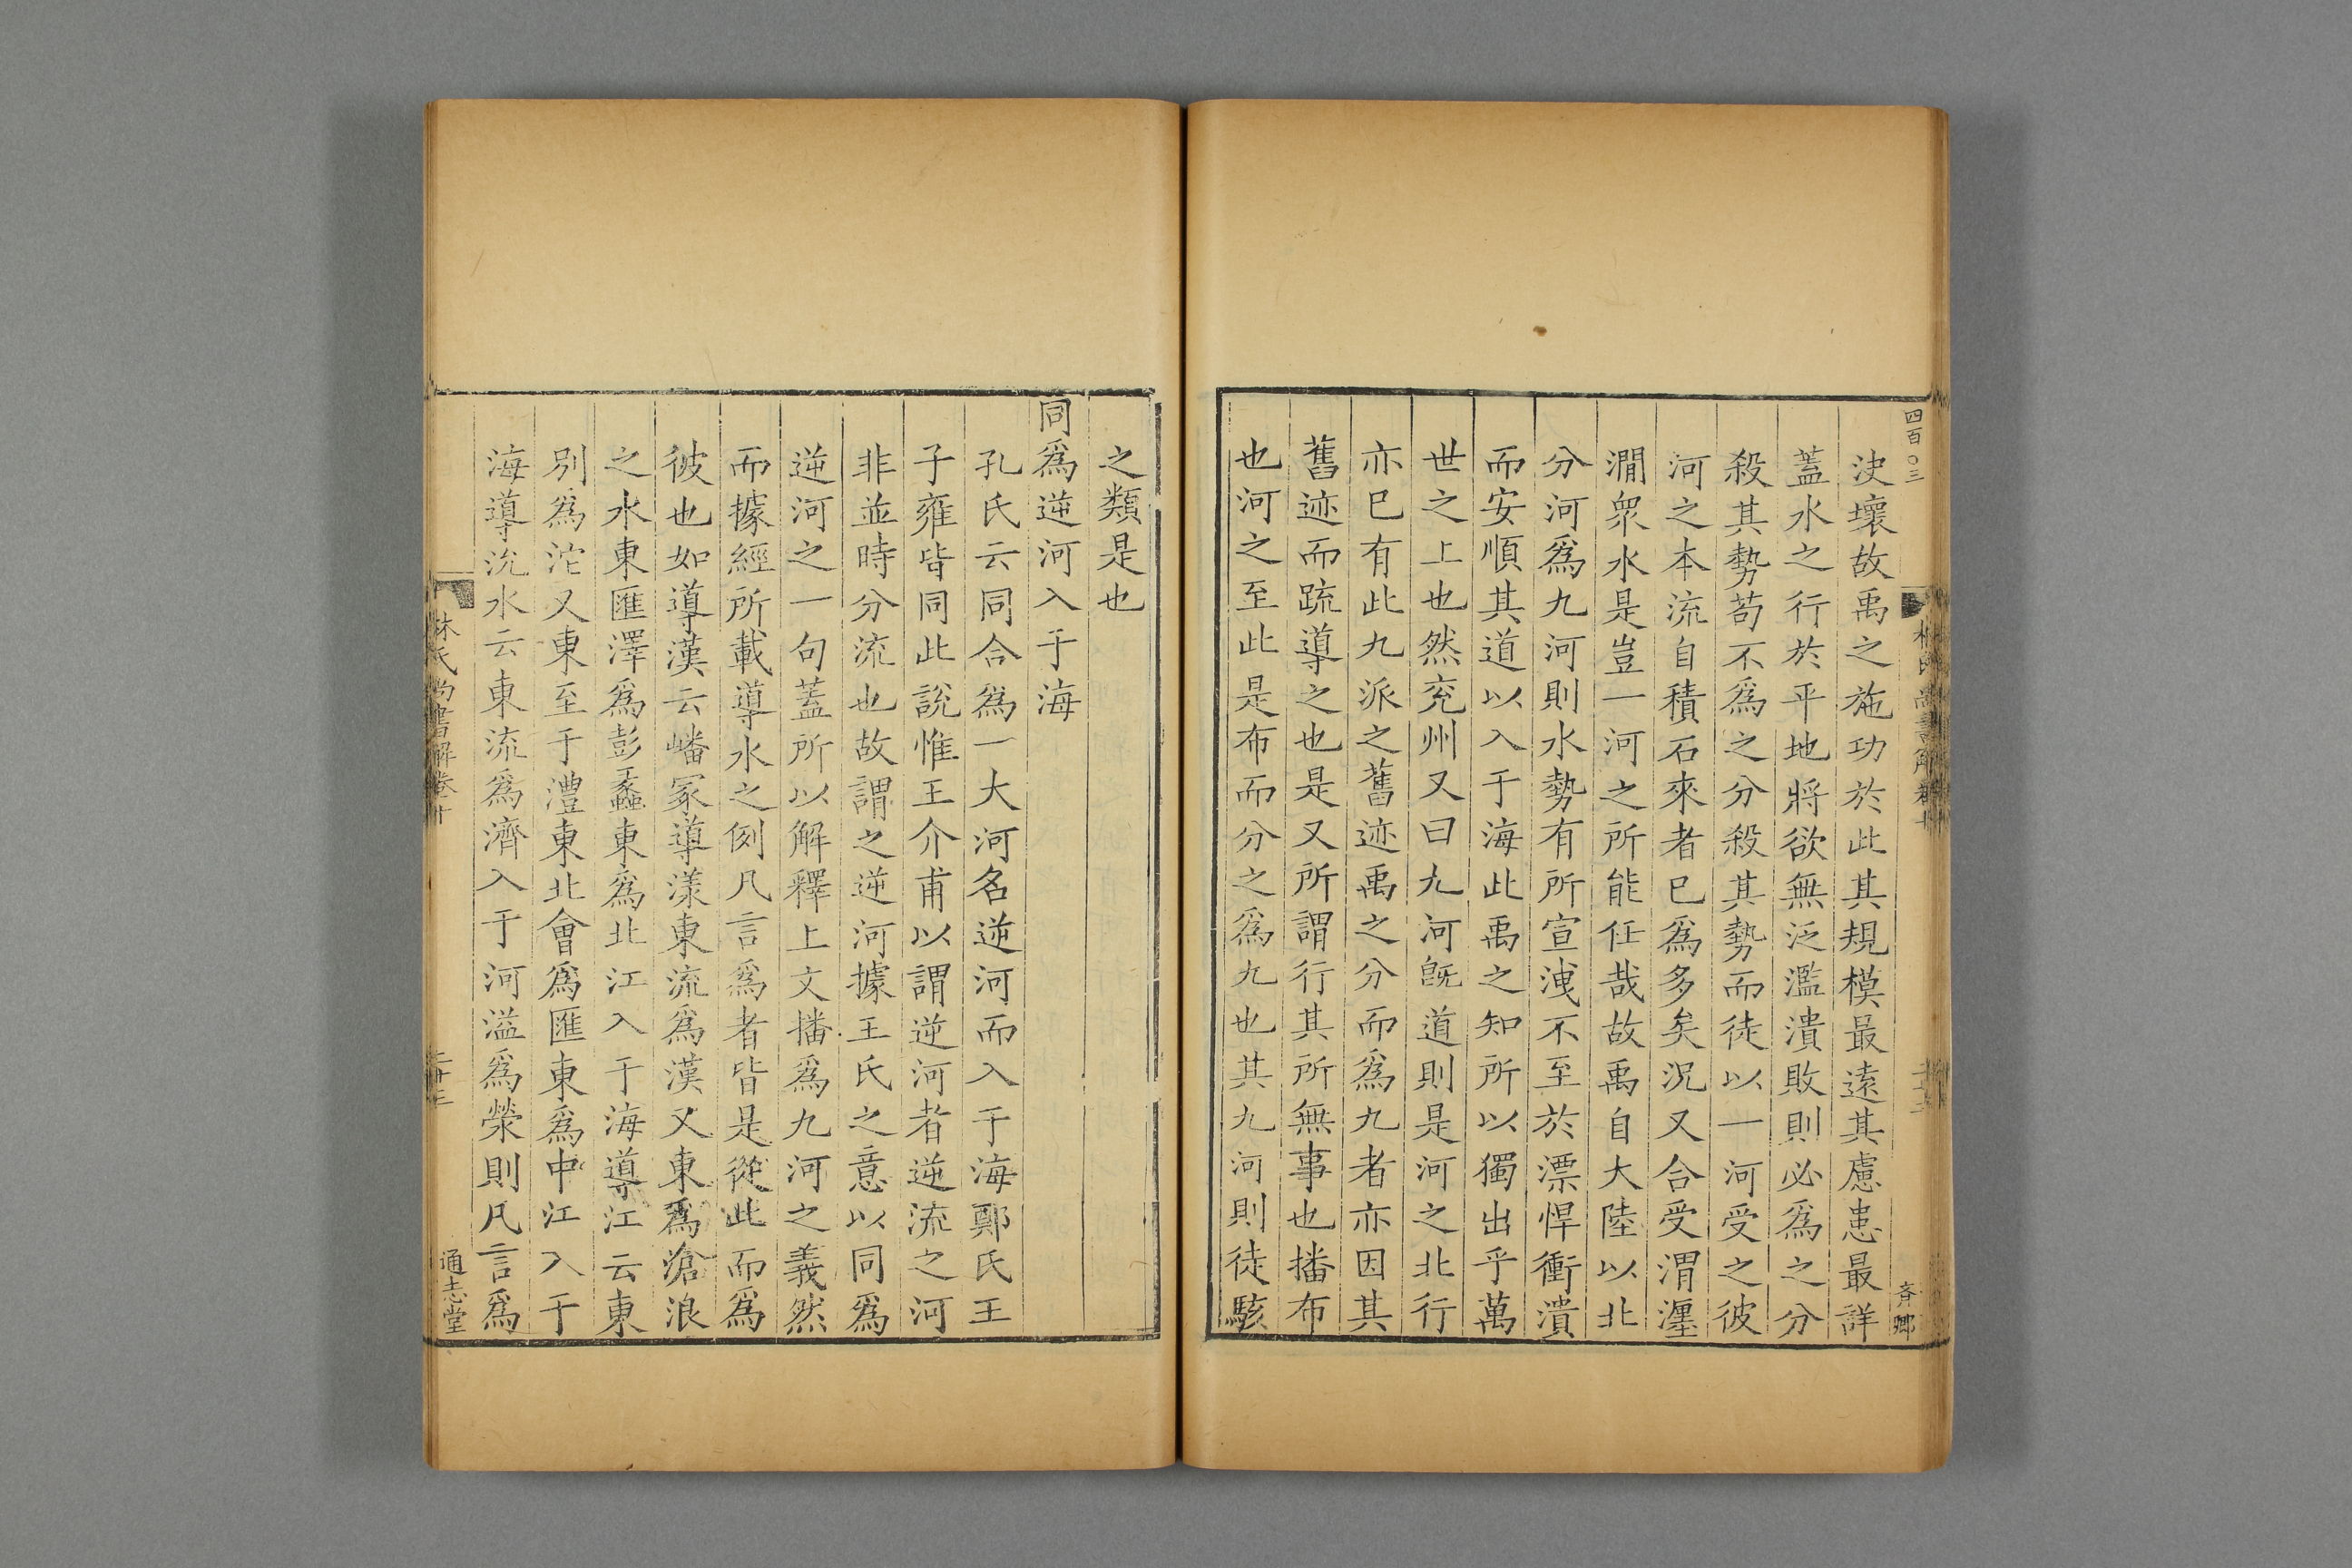 四百○三
決壞故禹之施功於此其規模最遠其慮患最詳
蓋水之行於平地將欲無泛濫潰敗則必爲之分
殺其勢苟不爲之分殺其勢而徒以一河受之彼
河之本流自積石來者已爲多矣況又合受渭瀍
澗衆水是豈一河之所能任哉故禹自大陸以北
分河爲九河則水勢有所宣洩不至於漂悍衝潰
而安順其道以入于海此禹之知所以獨出乎萬
世之上也然兖州又曰九河旣道則是河之北行
亦已有此九派之舊迹禹之分而爲九者亦因其
舊迹而疏導之也是又所謂行其所無事也播布
也河之至此是布而分之爲九也其九河則徒駭
之類是也
同爲逆河入于海
孔氏云同合爲一大河名逆河而入于海鄭氏王
子雍皆同此說惟王介甫以謂逆河者逆流之河
非並時分流也故謂之逆河據王氏之意以同爲
逆河之一句蓋所以解釋上文播爲九河之義然
而據經所載導水之例凡言爲者皆是從此而爲
彼也如導漢云嶓冢導漾東流爲漢又東爲滄浪
之水東匯澤爲彭蠡東爲北江入于海導江云東
別爲沱又東至于澧東北會爲匯東爲中江入于
海導沇水云東流爲濟入于河溢爲滎則凡言爲
林氏尚書解卷十
通志堂